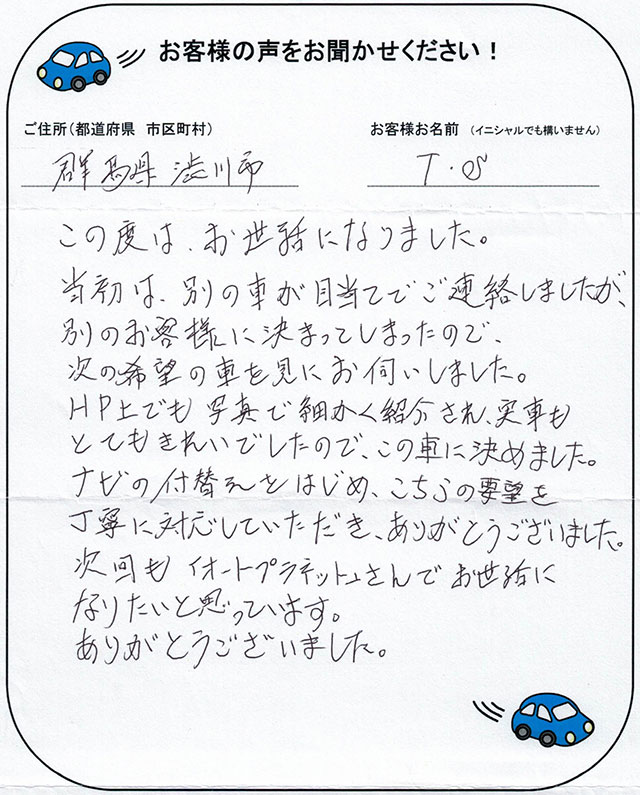 お客様の声をお聞かせください！
ご住所（都道府県 市区町村）
お客様お名前 （イニシャルでも構いません）
群馬県 渋川市
T.S
この度は、お世話になりました。
当初は、別の車が目当てでご連絡しましたが、
別のお客様に決まってしまったので、
次の希望の車を見にお伺いしました。
HP上でも写真で細かく紹介され、実車も
とてもきれいでしたので、この車に決めました。
ナビの付替えをはじめ、こちらの要望を
丁寧に対応していただき、ありがとうございました。
次回も「オートプラネット」さんでお世話に
なりたいと思っています。
ありがとうございました。